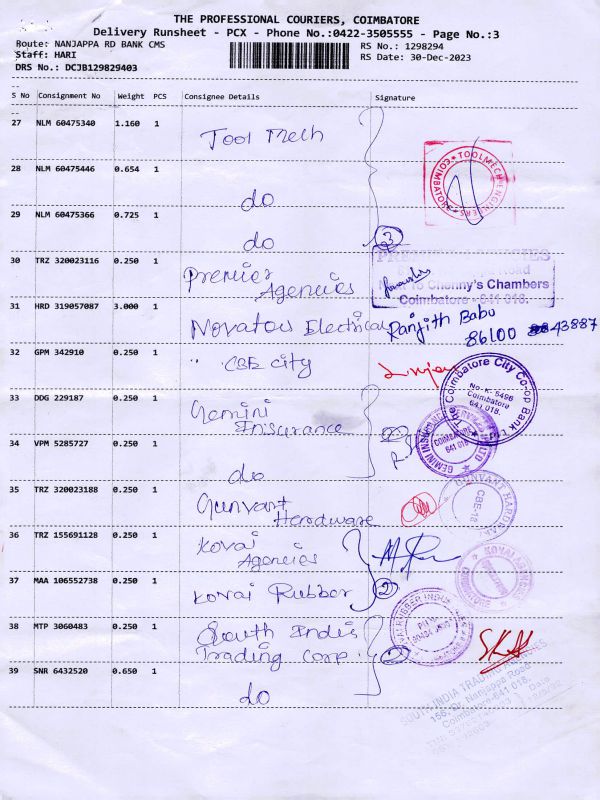 THE PROFESSIONAL COURIERS, COIMBATORE
Delivery Runsheet - PCX - Phone No.:0422-3505555 - Page No.:3
Route: NANJAPPA RD BANK CMS
RS No.: 1298294
Staff: HARI
RS Date: 30-Dec-2023
DRS No.: DCJB129829403
S No Consignment No Weight PCS Consignee Details Signature
27 NLM 60475340 1.160 1 Tool Mech
28 NLM 60475446 0.654 1 do
29 NLM 60475366 0.725 1 do 3
TOOL MECH ENGINEERS
COIMBATORE
30 TRZ 320023116 0.250 1 Premier
Agencies
Chenny's Chambers
Coimbatore - 641 018.
31 HRD 319057087 3.000 1 Novatous Electrical Ranjith Babu
86100 43887
32 GPM 342910 0.250 1 " CBE city
The Coimbatore City Co-op Bank Ltd
No. K. 5496
Coimbatore
641 018.
33 DDG 229187 0.250 1 Gemini
Insurance
COIMBATORE
641 018
34 VPM 5285727 0.250 1 do
35 TRZ 320023188 0.250 1 Gunvant
Hardware
GUNVANT HARDWARE
CBE-18
36 TRZ 155691128 0.250 1 Kovai
Agencies
KOVAI AGENCIES
37 MAA 106552738 0.250 1 Kovai Rubber 2
38 MTP 3060483 0.250 1 South India
Trading Corp.
39 SNR 6432520 0.650 1 do
SOUTH INDIA TRADING
Nanjappa Road
Coimbatore-641 018.